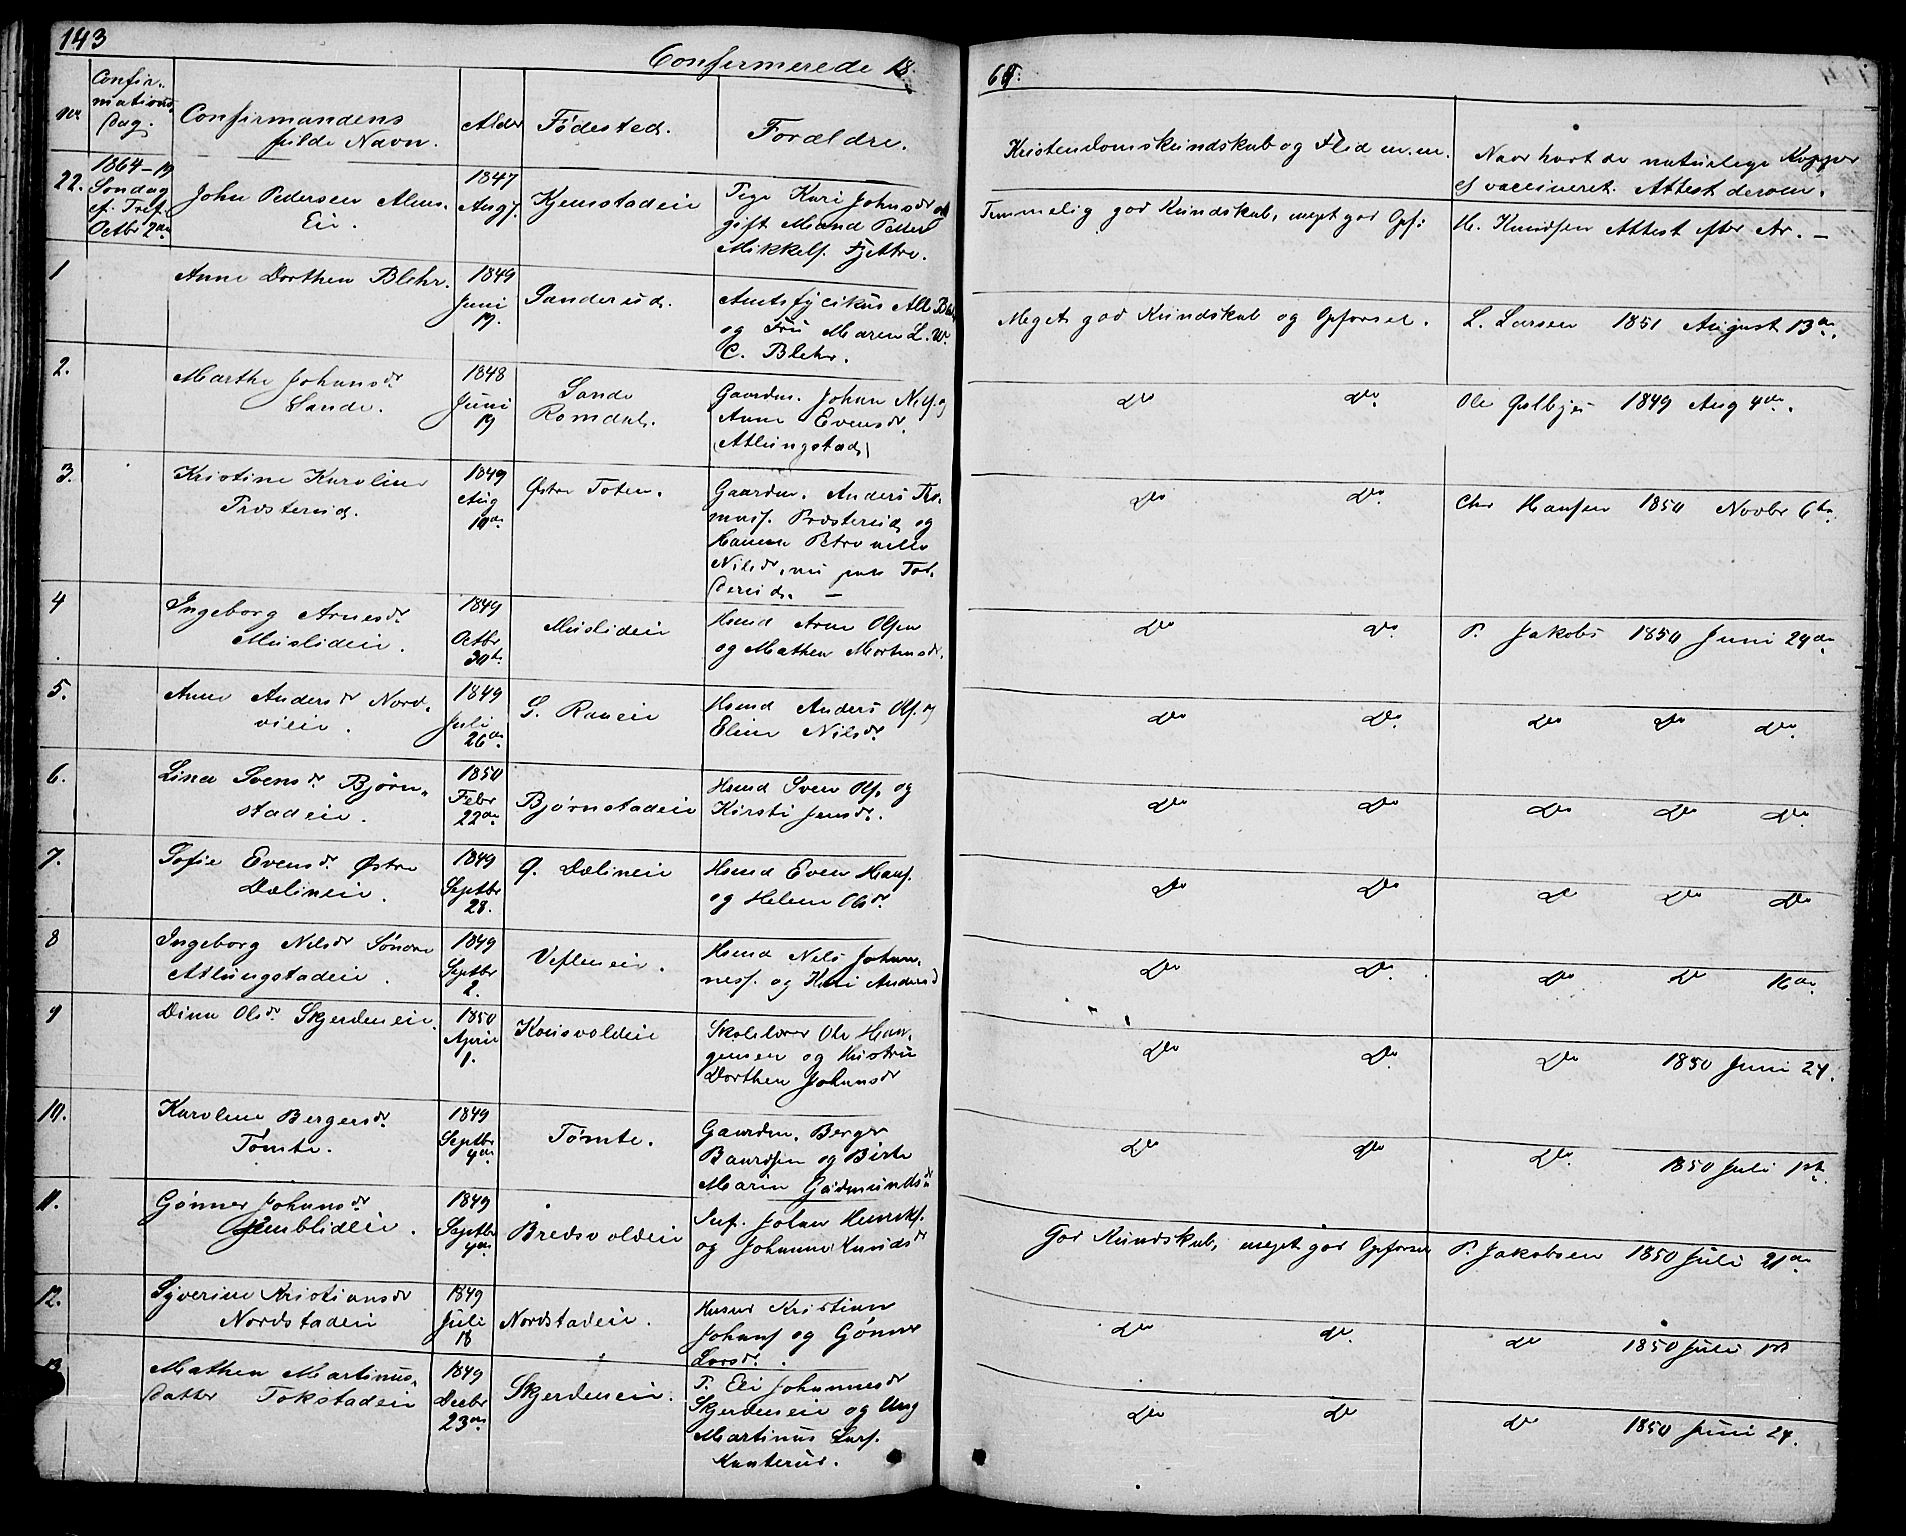 143
Confermerede 18
64.
nr
Confir-
mations
Dag.
Confirmandens
fulde Navn.
Alder
Fødested.
Forældre.
Kristendomskundskab og Flid m.m.
Naar havt de naturlige Kopper
el vaccineret. Attest derom.
22.
1864-19
Søndag
ef. Tref.
Octbr 2den
John Pedersen Alms-
Ei.
1847
Aug
Kjemstadeie
Pige Kari Johnsdr og
gift Mand Peder
Mikkels. Fjettre.
Temmelig god Kundskab, meget god Opf:
M. Knudsen Attest efter Ar. -
1
Anne Dorthea Blehr.
1849
Juni
19.
Sanderud.
Amtsfysikus All. Blehr
og Fru Maren L. W.
C. Blehr.
Meget god Kundskab og Opførsel.
L. Larsen 1851 August 13de.
2.
Marthe Johansdr
Sande.
1848
Juni
19
Sande
Romdal.
Gaardm. Johan Nils. og
Anne Evensdr.
(Atlungstad)
Do Do
Ole Gulbjør 1849 Aug 4de.
3.
Kristine Karoline
Præsterud.
1849
Aug
10de
Østre Toten.
Gaardm. Anders Tho-
mass. Præsterud og
Hanna Petronelle
Nilsdr, nu paa Tod-
derud. -
Do Do
Chr Hansen 1850 Novbr 6te
4
Ingeborg Arnesdr
Muslideie.
1849
Octbr
30te
Muslideie
Hsmd Arne Olsen
og Mathea Mortensdr.
Do Do
P. Jakobs 1850 Juni 24de
5.
Anne Andersdr Nord-
vieie.
1849
Juli
26de
S. Raneie
Hsmd Anders Ols. og
Eline Nilsdr.
Do Do
Do Do Do
6.
Lina Svensdr Bjørn-
stadeie.
1850
Febr
22de
Bjørnstadeie
Hsmd Sven Ols. og
Kirsti Jensdr.
Do Do
Do Do Do
7.
Sofie Evensdr Østre
Dælineie.
1849
Septbr
28.
Ø. Dælineie
Hsmd Even Hans.
og Helene Olsdr.
Do Do
Do Do Do
8
Ingeborg Nilsdr Søndre
Atlungstadeie.
1849
Septbr
2.
Vefleneie.
Hsmd Nels Johan-
ness. og Kari Andersd
Do Do
Do Do 16de
9
Dina Olsdr Skjerdeneie.
1850
April
1.
Konsvoldeie
Skolelærer Ole Haa-
gensen og Hustru
Dorthea Johansdr
Do Do
Do 1850 Juni 24.
10.
Karoline Bergersdr.
Tømte.
1849
Septbr
4de
Tømte.
Gaardm. Berger
Baardsen og Birte
Marie Gudmundsdr
Do Do
Do 1850 Juli 1ste.
11.
Gønner Johansdr
Gjemblideie.
1849
Septbr
4de
Bredsvoldeie
Inf. Johan Henriks.
og Johanne Knudsdr
God Kundskab, meget god Opførsel
P. Jakobsen 1850 Juli 21de
12.
Syverine Kristiansdr
Nordstadeie
1849
Juli
18
Nordstadeie.
Husmd Kristian
Johans og Gønner
Larsdr.
Do Do
Do 1850 Juli 1ste
13
Mathea Martinus-
datter Tokstadeie
1849
Decbr
23de
Skjerdeneie.
P. Eli Johannesdr
Skjerdeneie og Ung
Martinus Lars.
Kanterud.
Do Do
Do 1850 Juni 24.